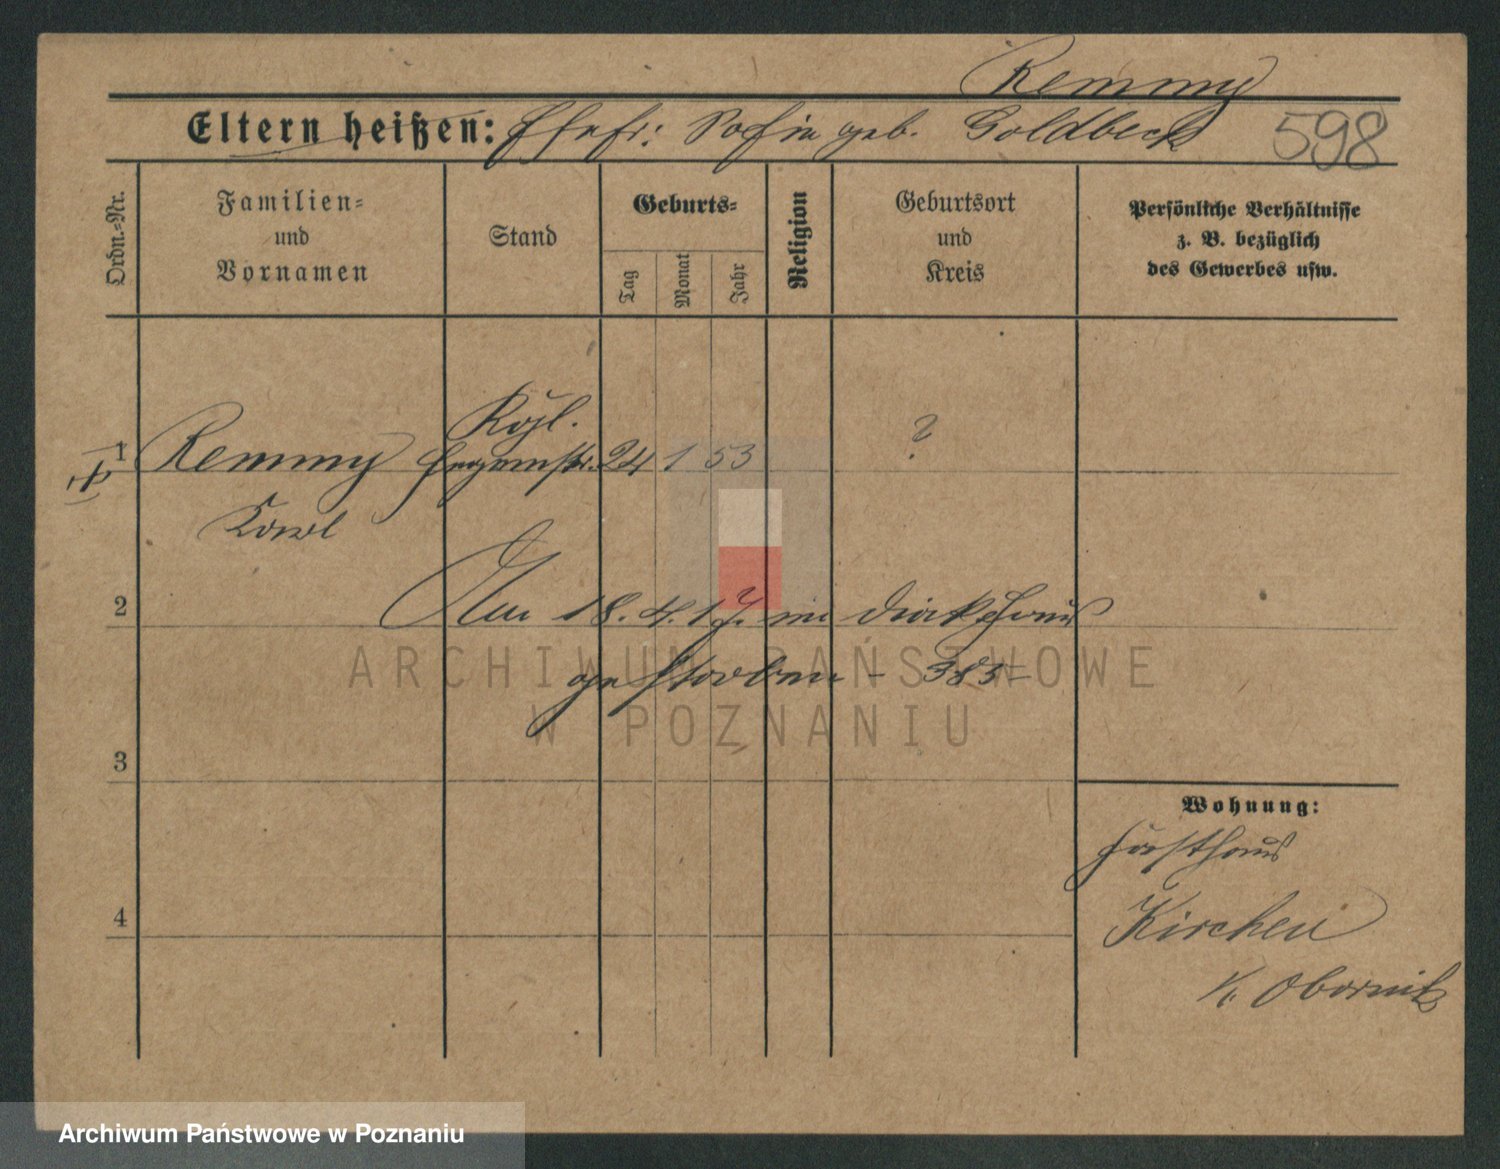 Remmy
Eltern heißen: Ehefr: Sofie geb. Goldbeck 598
Ordn.=Nr.
Familien=
und
Vornamen
Stand
Geburts=
Tag
Monat
Jahr
Religion
Geburtsort
und
Kreis
Persönliche Verhältnisse
z. B. bezüglich
des Gewerbes usw.
Kgl.
1 Remmy Hegemstr. 24 1 53 ?
Karl
2 Am 18. 4. 17. im Diakhaus
gestorben - 383 -
ARCHIWUM PAŃSTWOWE
W POZNANIU
3
Wohnung:
Forsthaus
4 Kirchen
K. Obornik
Archiwum Państwowe w Poznaniu